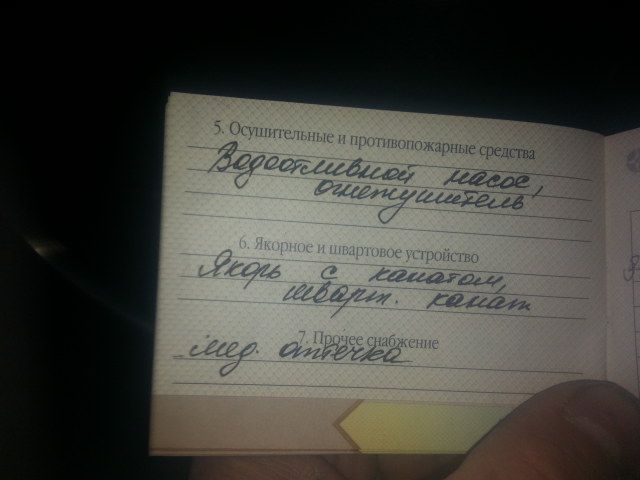 5. Осушительные и противопожарные средства
Водоотливной насос,
огнетушитель
6. Якорное и швартовое устройство
Якорь с канатом,
шварт. канат
7. Прочее снабжение
мед. аптечка